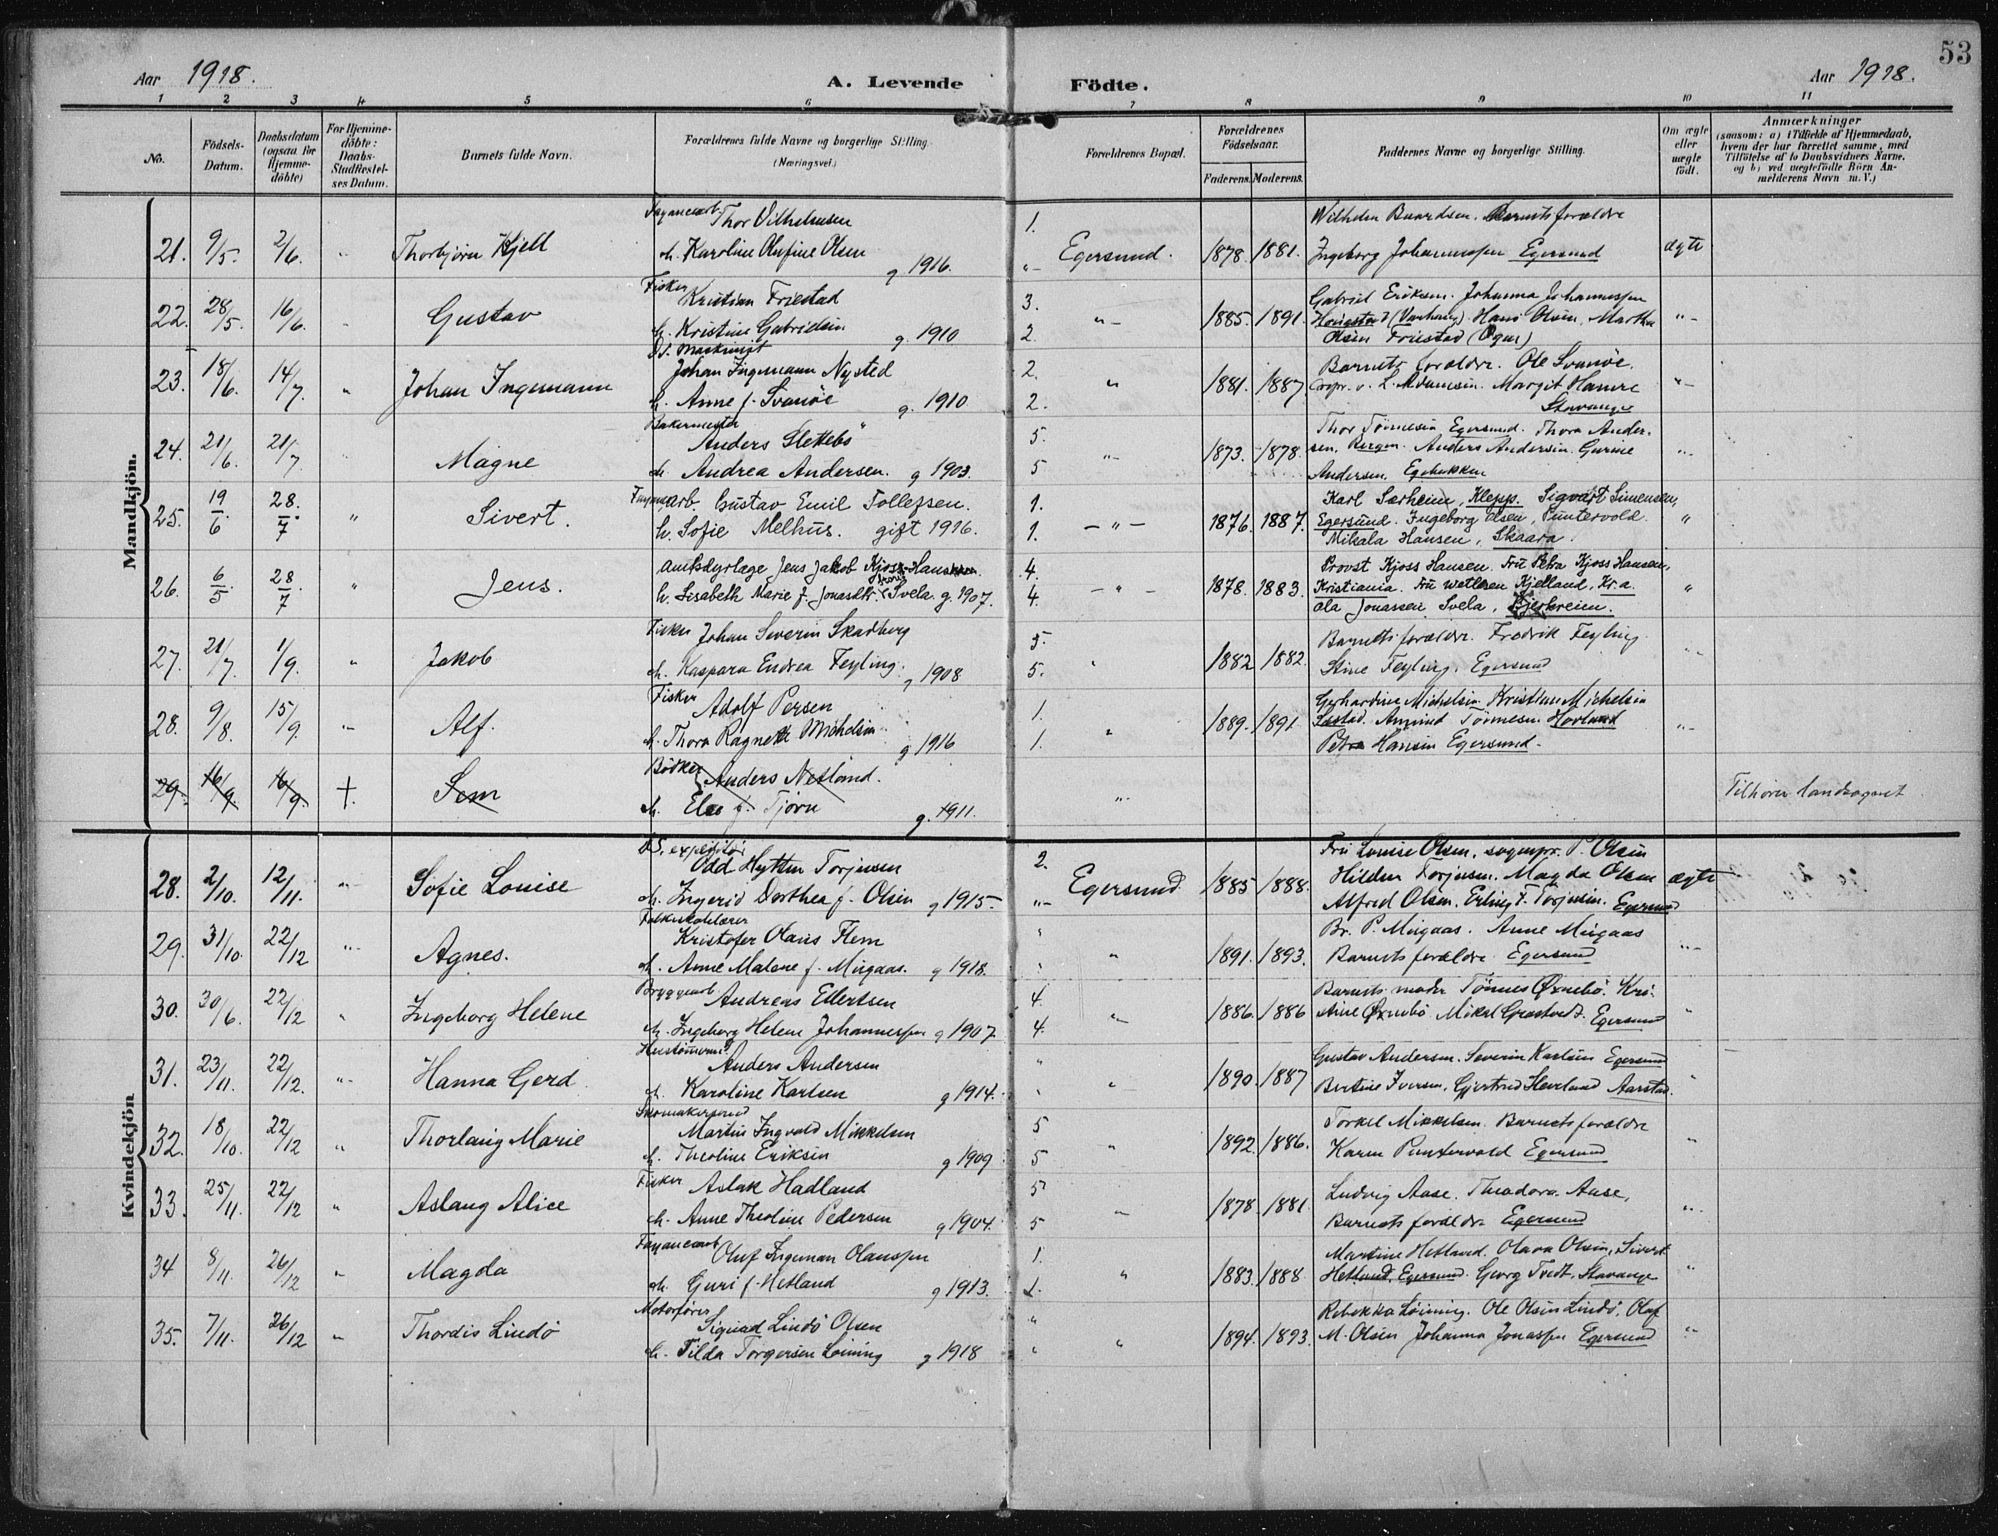 53
Aar 1918. A. Levende Födte. Aar 1918.
1 2 3 4 5 6 7 8 9 10 11
No.
Födsels-
Datum.
Daabsdatum
(ogsaa for
Hjemme-
döbte)
For Hjemme-
döbte:
Daabs-
Stadfæstel-
ses Datum.
Barnets fulde Navn.
Forældrenes fulde Navne og borgerlige Stilling.
(Næringsvei.)
Forældrenes Bopæl.
Forældrenes
Födselsaar.
Faderens. Moderens.
Faddernes Navne og borgerlige Stilling.
Om ægte
eller
uægte
født.
Anmærkninger
(saasom: a) i Tilfælde af Hjemmedaab,
hvem der har forrettet samme, med
Tilföielse af to Daabsvidners Navne,
og b) ved uægtefödte Börn An-
melderens Navn m. V.)
Mandkjön.
Fayancearb Thor Vilhelmsen 1. Wilhelm Baardsen. Barnets forældre
21. 9/5 2/6 " Thorbjörn Kjell h. Karoline Olufine Olsen g 1916. "- Egersund. 1878. 1881. Ingeborg Johannessen Egersund ægte
Fisker Kristian Friestad 3. Gabriel Eriksen. Johanna Johannessen
22. 28/5 16/6 " Gustav h. Kristine Gabrielsen g. 1910 2. "- 1885. 1891. (Varhaug) Hans Olsen, Martha "-
Olsen Friestad (Ogna)
DS. Maskinist Johan Ingemann Nysted 2. Barnets forældre. Ole Svanöe.
23. 18/6 14/7 " Johan Ingemann h. Anne f. Svanöe g. 1910 2. " 1881. 1887 Margit Hamre "-
Stavanger
Bakermester Anders Slettebö 5. Thor Tönnesen Egersund. Thora Ander-
24. 21/6 21/7 Magne h. Andrea Andersen. g 1903. 5 "- 1873. 1878. sen, Bergen. Anders Andersen. Gurine "-
Andersen Egebakken
Fayancearb. Gustav Emil Tollefsen. 1. Karl Særheim, Klepp. Sigvart Simensen,
25. 19/6 28./7 " Sivert. h. Sofie Melhus. gift 1916. 1. - " - 1876. 1887. Egersund. Ingeborg Olsen, Puntervold. "
Mikala Hansen, Skaara.
Amtsdyrlæge Jens Jakob Kjoss-Hanssen. 4. Provst Kjoss Hansen. Fru Petra Kjoss Hansen,
26. 6/5 28/7 " Jens. h. Lisabeth Marie f. Jonasdtr. Svela. g. 1907. 4. - " - 1878. 1883. Kristiania. Fru Wetlesen Kjelland, Kr.a. "
Ola Jonassen Svela, Bjerkreim.
Fisker Johan Severin Skadberg 5. Barnets forældre. Fredrik Feyling.
27. 21/7 1/9. " Jakob h. Kaspara Endrea Feyling. g 1908 5. " 1882 1882. Stine Feyling. Egersund "-
Fisker Adolf Persen 1. Gerhardine Michelsen Kristian Michelsen
28. 9/8. 15/9. " Alf. h. Thora Ragnetle Michelsen g 1916 1. " 1889. 1891 Tönnesen Hovland "-
Petra Hansen Egersund.
Bödker Anders Netland.
29. 16/9. 16/9. +. Sem h. Else f. Tjörn g. 1911. "- Tilhörer landsognet
Kvindekjön
DS. expeditör Odd Hytten Torjusen 2. Fru Louise Olsen, sogнepr. P. Olsen
28. 2/10. 12/11. "- Sofie Louise h. Ingerid Dorthea f. Olsen g 1915. "- Egersund 1885 1888. Hildur Torjusen. Magda Olsen ægte
Alfred Olsen. Erling F. Torjusen. Egersund
Kristofer Olaus Flem " Br. P. Mugaas. Anne Mugaas
29. 31/10 22/12 "- Agnes. h. Anne Malene f. Mugaas. g 1918. " " 1891. 1893. Barnets forældre Egersund "-
Bryggearb Andreas Eilertsen 4. Barnets moder Tönnes Öxnebö. Kri-
30. 30/6. 22/12 " Ingeborg Helene h. Ingeborg Helene Johannessen g 1907 4. "- 1886. 1886 stine Öxnebö. Egersund "
Anders Andersen " Gustav Andersen. Severin Karlsen Egersund
31. 23/11. 22/12. "- Hanna Gerd h. Karoline Karlsen g 1914. " "- 1890. 1887 Bertine Iversen, Gjertrud Hevland Aarstad. "
Skomakersvend Martin Ingvald Mikkelsen 5 Torkel Mikkelsen. Barnets forældre
32. 18/10. 22/12 " Thorlaug Marie h. Theoline Eriksen g 1909 5 " 1892. 1886. Karen Puntervold Egersund "
Fisker Aslak Hadland 5 Ludvig Aase. Theodora Aase,
33. 25/11. 22/12 " Aslaug Alice h. Anne Theoline Pedersen g 1904. 5 "- 1878. 1881 Barnets forældre Egersund "-
Fayancearb Oluf Ingeman Olaussen 1. Martine Hetland. Olava Olsen, Sivert
34 8/11. 26/12 " Magda h. Guri f. Hetland g 1913. 1. " 1883. 1888 Hetland, Egersund. Georg Tvedt, Stavanger "
Motorförer Sigvad Lindö Olsen " Rebekka Löining. Ole Olsen Lindö, Oluf
35. 7/11. 26/12 " Thordis Lindö h. Tilda Torgersen Löining g 1918 " " 1894. 1893. M. Olsen Johanna Jonassen Egersund "-